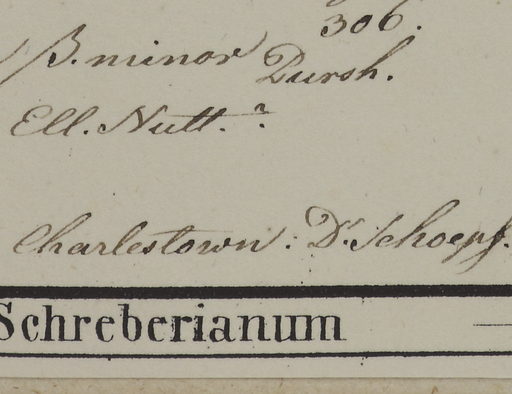 306.
β. minor Pursh.
Ell. Nutt. ?
Charlestown: Dr. Schoepf.
Schreberianum